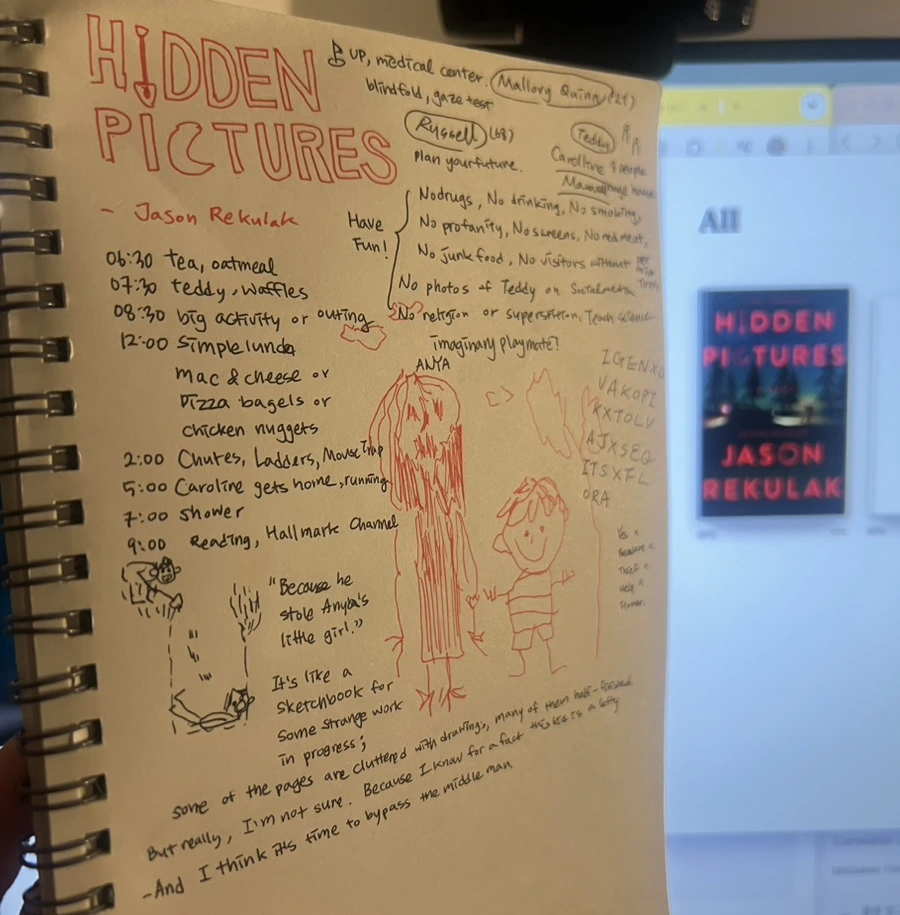 HIDDEN
PICTURES
- Jason Rekulak
UP, medical center. Mallory Quinn (21)
blindfold, gaze test
Russell (68)
plan your future.
Teddy
Caroline
Have
Fun!
No drugs, No drinking, No smoking,
No profanity, No screens, No red meat,
No junk food, No visitors without
No photos of Teddy on Social media
No religion or superstition, Teach science
imaginary playmate?
ANYA
06:30 tea, oatmeal
07:30 teddy, waffles
08:30 big activity or outing
12:00 Simple lunch
mac & cheese or
Pizza bagels or
chicken nuggets
2:00 Chutes, Ladders, Mouse Trap
5:00 Caroline gets home, running
7:00 shower
9:00 Reading, Hallmark Channel
IGENXO
VAKOPI
KXTOLV
AJXSEQ
ITSXFL
ORA
Help
"Because he
stole Anyba's
little girl."
It's like a
sketchbook for
some strange work
in progress;
some of the pages are cluttered with drawings, many of them half-finished
But really, I'm not sure. Because I know for a fact this is a lofty
-And I think it's time to bypass the middle man
All
HIDDEN
PICTURES
JASON
REKULAK